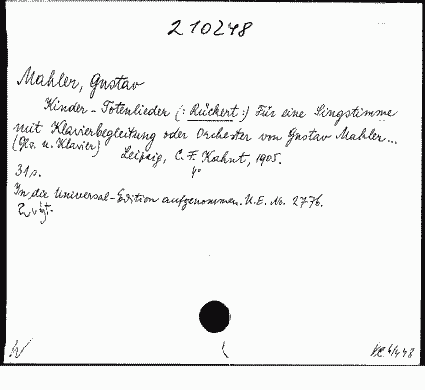 210248
Mahler, Gustav
Kinder-Totenlieder (: Rückert :) Für eine Singstimme
mit Klavierbegleitung oder Orchester von Gustav Mahler...
(Ges. u. Klavier) Leipzig, C. F. Kahnt, 1905.
31 s. 4°
In die Universal-Edition aufgenommen. U. E. No. 2776.